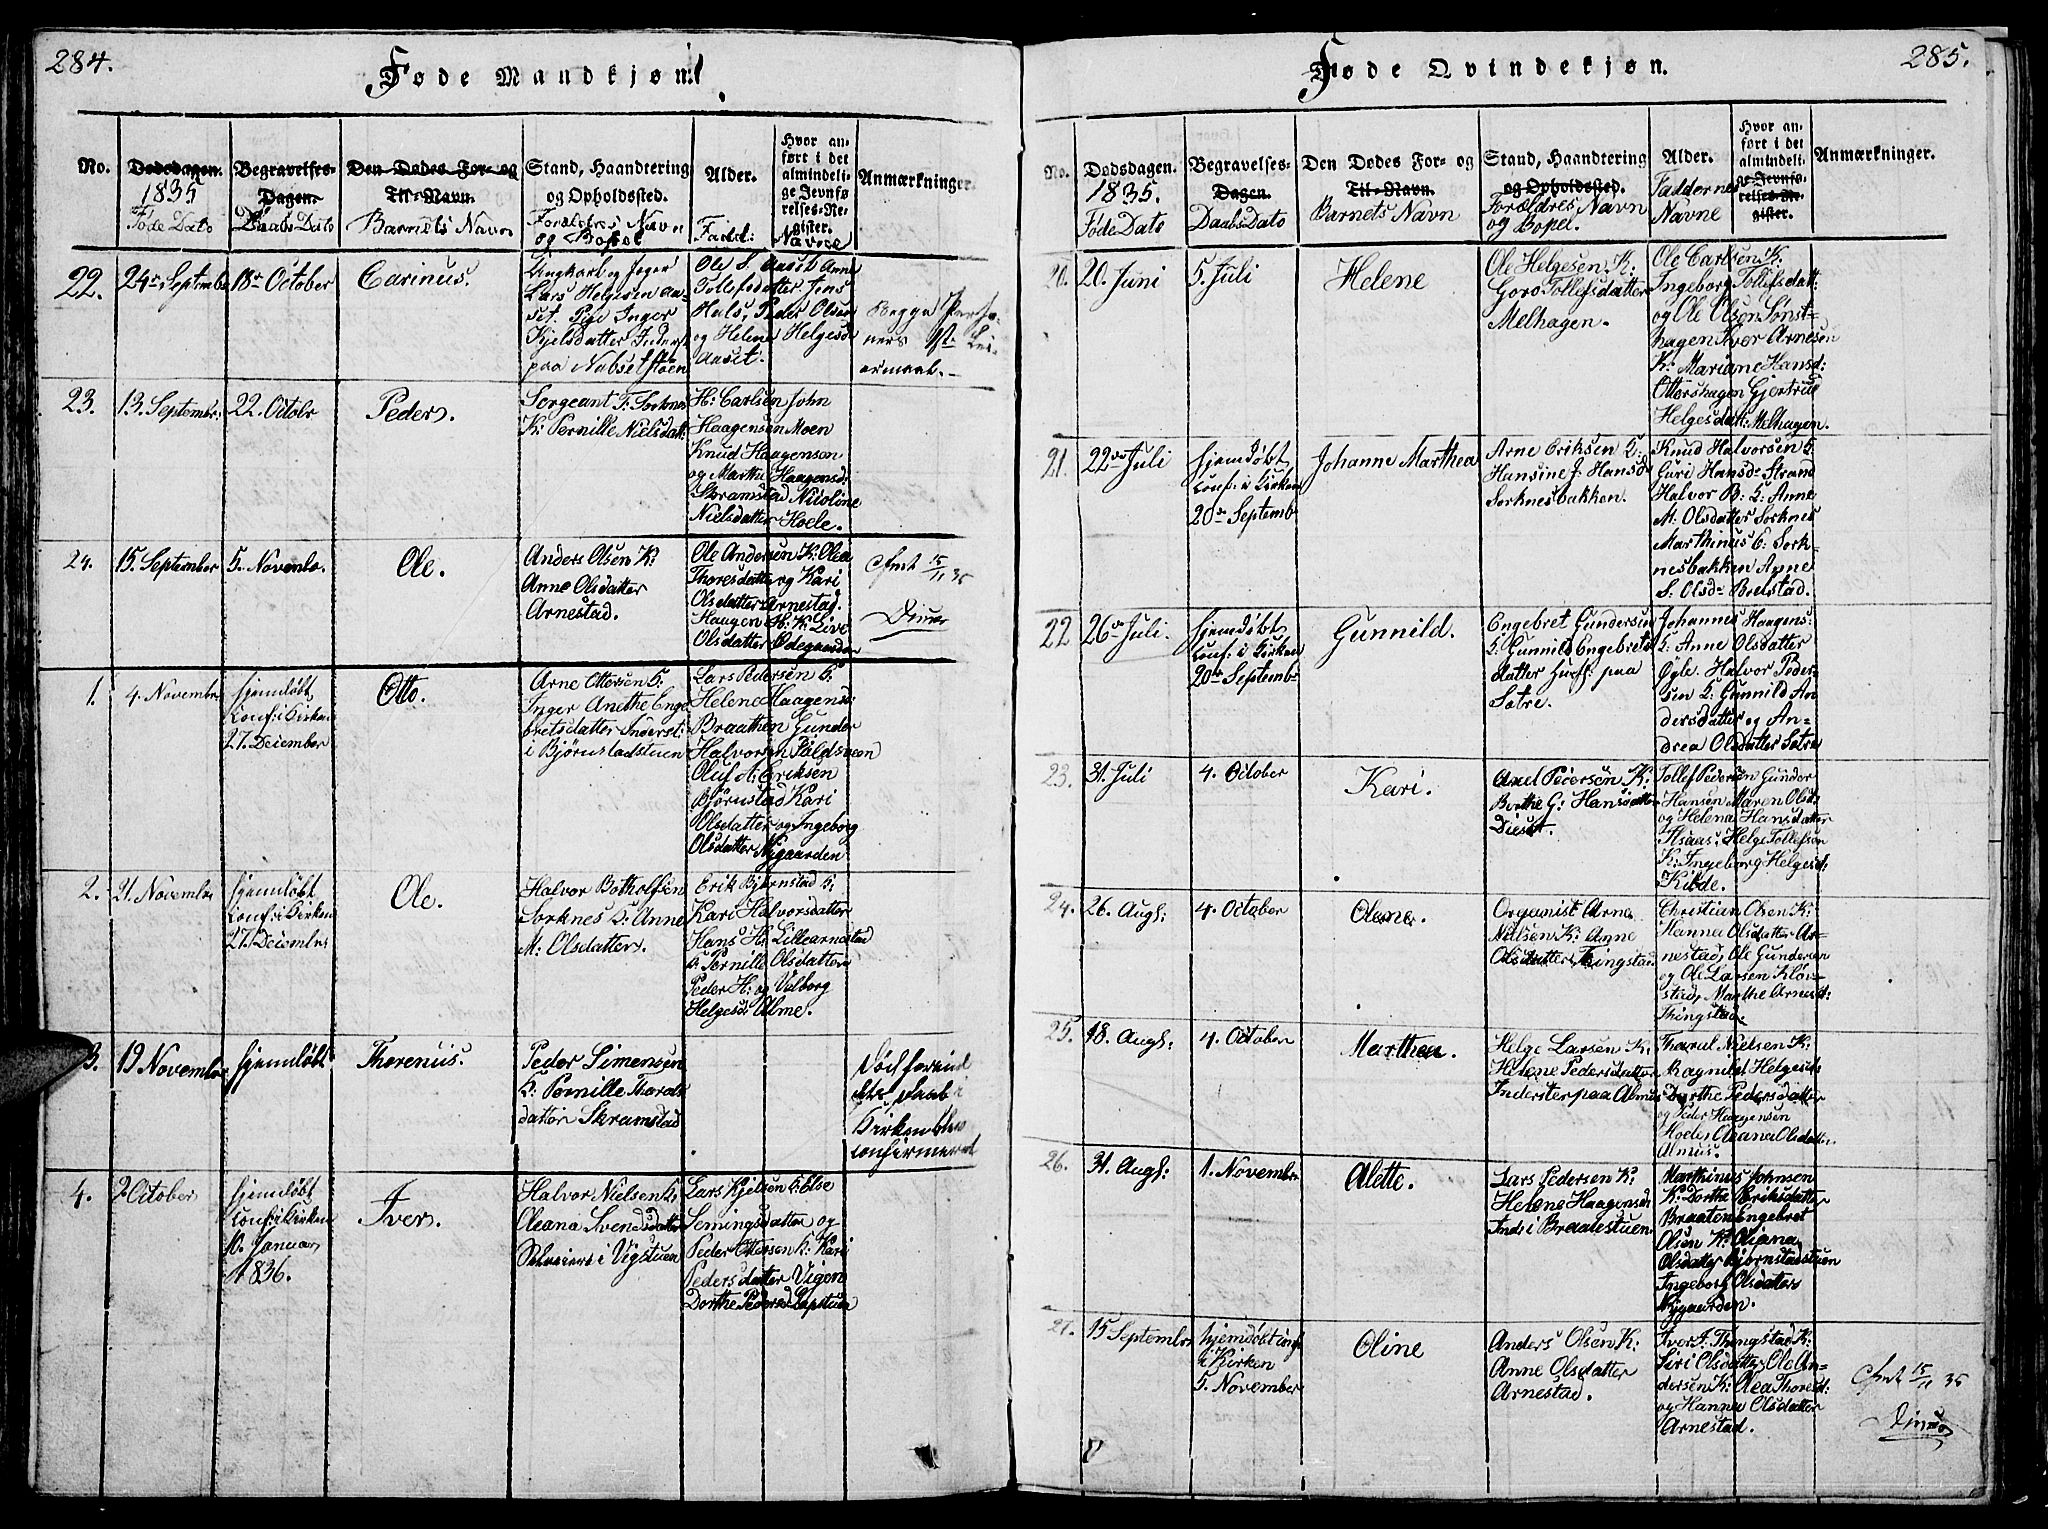 284.
Føde Mandkjøn
No.
Dødsdagen.
1835
Føde Dato
Begravelses-
Dagen.
Daabs Dato
Den Dødes For- og
Til-Navn.
Barnets Navn
Stand, Haandtering
og Opholdssted.
Forældres Navn
og Bopel
Alder.
Fadd:
Hvor an-
ført i det
almindeli-
ge Jevnfø
relses-Re-
gister.
Navne
Anmærkninger.
22.
24de Septembr
18de October
Carinus.
Ungkarl og Jæger
Lars Helgesen Aa-
set. Pige Inger
Kjelsdatter Inderst
paa
Ole S. Aaset Anne
Tollefsdatter Jens
Hals, Peder Olsen
og Helene Helgesd
Aaset.
Begge Perso-
ners 1ste Lei-
ermaal.
23.
13. Septembr:
22. Octobr
Peder.
Sergeant T: Sorknes
K: Pernille Nielsdatt:
H: Carlsen John
Haagensen Moen
Knud Haagensen
og Marthe Haagensd:
Skramstad Nicoline
Nielsdatter Hoele.
24.
15. September
5. Novembr.
Ole.
Anders Olsen K:
Anne Olsdatter
Arnestad.
Ole Andersen K: Olea
Thoresdatter og Kari
Olsdatter Arnestad.
Haagen H: K: Live
Olsdatter Ødegaarden
15/11 35
1.
4. Novembr
hjemdøbt
Conf: i Kirken
27. December
Otto.
Arne Ottersen K:
Inger Anethe Enge
bretsdatter Inderst:
i Bjørnstadstuen
Lars Pedersen K:
Helene Haagensd:
Braathen Gunder
Halvorsen
Oluf A: Eriksen
Bjørnstad Kari
Olsdatter og Ingeborg
Olsdatter Nygaarden
2.
21. Novembr
hjemdøbt
Conf: i Kirken
27. Decembr
Ole.
Halvor Botholfsen
Sorknes K: Anne
M: Olsdatter.
Erik Bjørnstad K:
Kari Halvorsdatter
Hans H: Lillearnestad
K: Pernille Olsdatter
Peder H: og Valborg
Helgesd: Alme.
3.
19 Novembr
hjemdøbt
Thorenius.
Peder Simensen
K: Pernille Thorals
datter Skramstad
Død forind
dets Daab i
Kirken blev
confirmeret
4.
2 October
hjemdøbt
Conf: i Kirken
10. Januar
1836.
Iver.
Halvor Nielsen K:
Oleana Svendsdatter
Selveiere i Vigstuen
Lars Kjelsen K: Else
Semingsdatter og
Peder Ottersen K: Kari
Pedersdatter Vigen
Dorthe Pedersd
285.
Føde Qvindekjøn.
No.
Dødsdagen.
1835.
Føde Dato
Begravelses-
Dagen.
Daabs Dato
Den Dødes For- og
Til-Navn.
Barnets Navn
Stand, Haandtering
og Opholdssted.
Forældres Navn
og Bopel.
Alder.
Faddernes
Navne
Hvor an-
ført i det
almindeli-
ge Jevnfø-
relses-Re-
gister.
Anmærkninger.
20.
20. Juni
5. Juli
Helene
Ole Helgesen K:
Goro Tollefsdatter
Melhagen.
Ole Carlsen K.
Ingeborg Tollefsdatt:
og Ole Olsen Sønst-
hagen Iver Arnesen
K: Mariane Hansd:
Ottershagen Gjertrud
Helgesdatt: Melhagen.
21.
22de Juli
hjemdøbt
Conf: i Kirken
20de Septemb
Johanne Marthea
Arne Eriksen K:
Hansine J: Hansd
Sorknesbakken.
Knud Halvorsen K.
Guri Hansdr Strand
Halvor B: K: Anne
M. Olsdatter Sorknes
Marthinus E: Sork-
nesbakken Anne
S: Olsdr Brelstad.
22
26de Juli.
hjemdøbt
Conf: i Kirken
20de Septembr
Gunnild.
Engebret Gundersen
K: Gunnild Engebrets
datter Huusf: paa
Sætre.
Johannes Haagens:
K: Anne Olsdatter
Øyle. Halvor Peder-
sen K: Gunnild An
dersdatter og An-
drea Olsdatter Sætre
23.
31. Juli
4. October
Kari.
Axel Pedersen K:
Berthe G: Hansdatter
Dieset.
Tollef Pedersen Gunder
Hansen Maren Olsd:
og Helena Hansdatter
Aasaas, Helge Tollefsen
K: Ingeborg Helgesd:
Kilde.
24.
26. Augs:
4. October
Olene.
Organist Arne
Nielsen K: Anne
Olsdatter Tingstad
Christian Olsen K:
Hanna Olsdatter Ar-
nestad, Ole Gundersen
og Ole Larsen Kløv-
stad, Marthe Arnesd:
Thingstad.
25.
18. Augs:
4. October
Marthea.
Helge Larsen K:
Helene Pedersdatter
Inderster paa Almus
Tharul Nielsen K:
Ragnild Helgesd:
Dorthe Pedersdatter
og Peder Haagensen
Hoele, Oleana Olsdatter
Almus.
26.
31. Augs:
1. Novembr
Alette.
Lars Pedersen K:
Helene Haagensen
Inds: i Braatestuen
Marthinus Johnsen
K: Dorthe Eriksdatter
Braaten Engebret
Olsen K: Oliana
Olsdatter Bjørnstadstuen
Ingeborg Olsdatter
Nygaarden.
27.
15 Septembr
hjemdøbt
i Kirken
5. November
Oline
Anders Olsen K:
Anne Olsdatter
Arnestad.
Iver I. Thingstad K:
Siri Olsdatter Ole An-
dersen K: Olea Thoresd:
og Hanna Olsdatter
Arnestad.
15/11 35